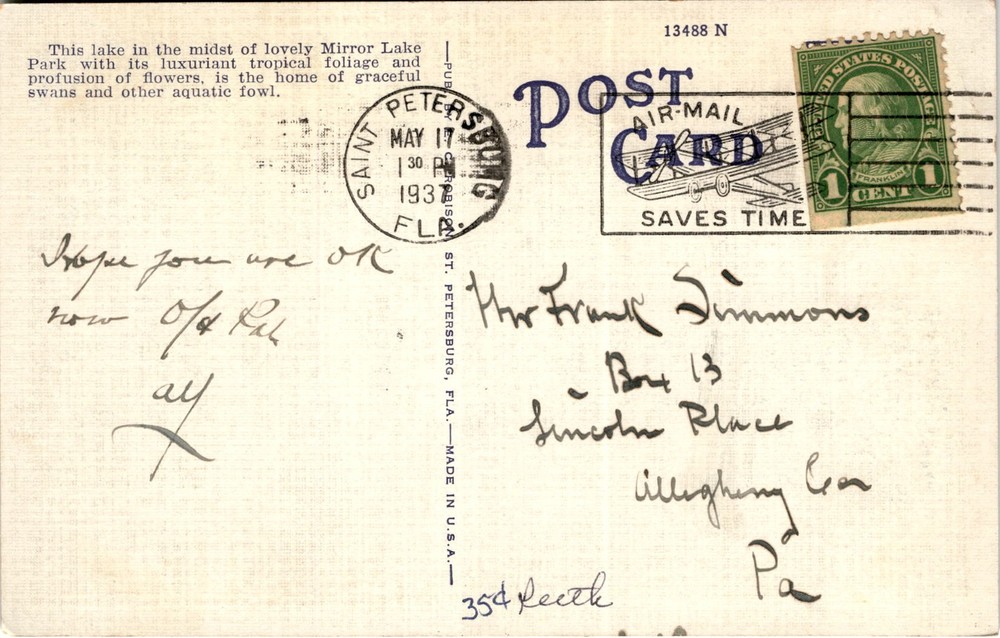 13488 N
This lake in the midst of lovely Mirror Lake
Park with its luxuriant tropical foliage and
profusion of flowers, is the home of graceful
swans and other aquatic fowl.
POST
CARD
SAINT PETERSBURG
MAY 17
1 30 P
1937
FLA.
AIR-MAIL
SAVES TIME
UNITED STATES POSTAGE
FRANKLIN
1 CENT 1
ROBISON ST. PETERSBURG, FLA.—MADE IN U.S.A.—
Hope you are OK
now Old Pal
Al
Mr Frank Simmons
Box 13
Lincoln Place
Allegheny Co
Pa
35¢